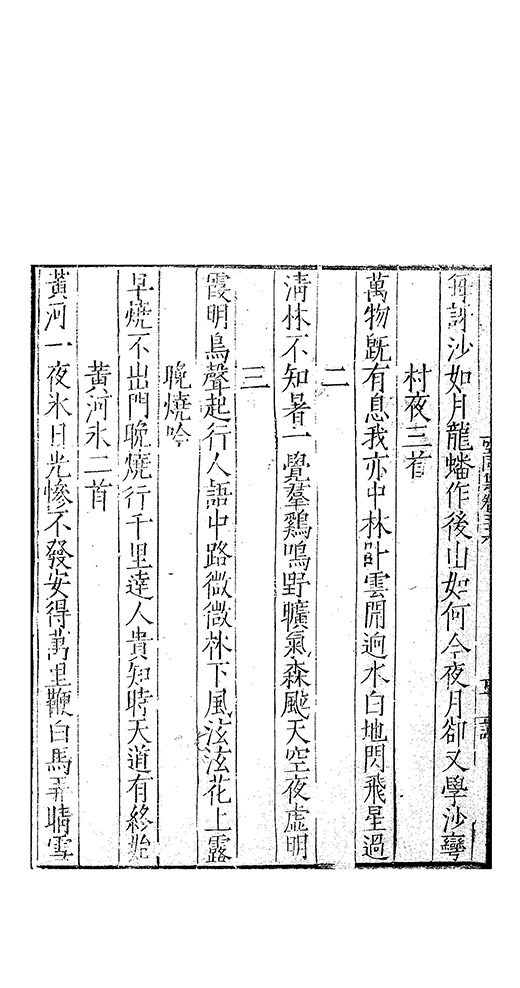 每訝沙如月龍蟠作後山如何今夜月卻又學沙彎
村夜三首
萬物旣有息我亦中林卧雲開逈水白地閃飛星過
二
清林不知暑一覺羣鷄鳴野曠氣森颼天空夜虛明
三
霞明鳥聲起行人語中路微微林下風泫泫花上露
晚燒吟
早燒不出門晚燒行千里達人貴知時天道有終始
黃河氷二首
黃河一夜氷日光慘不發安得萬里鞭白馬弄晴雪